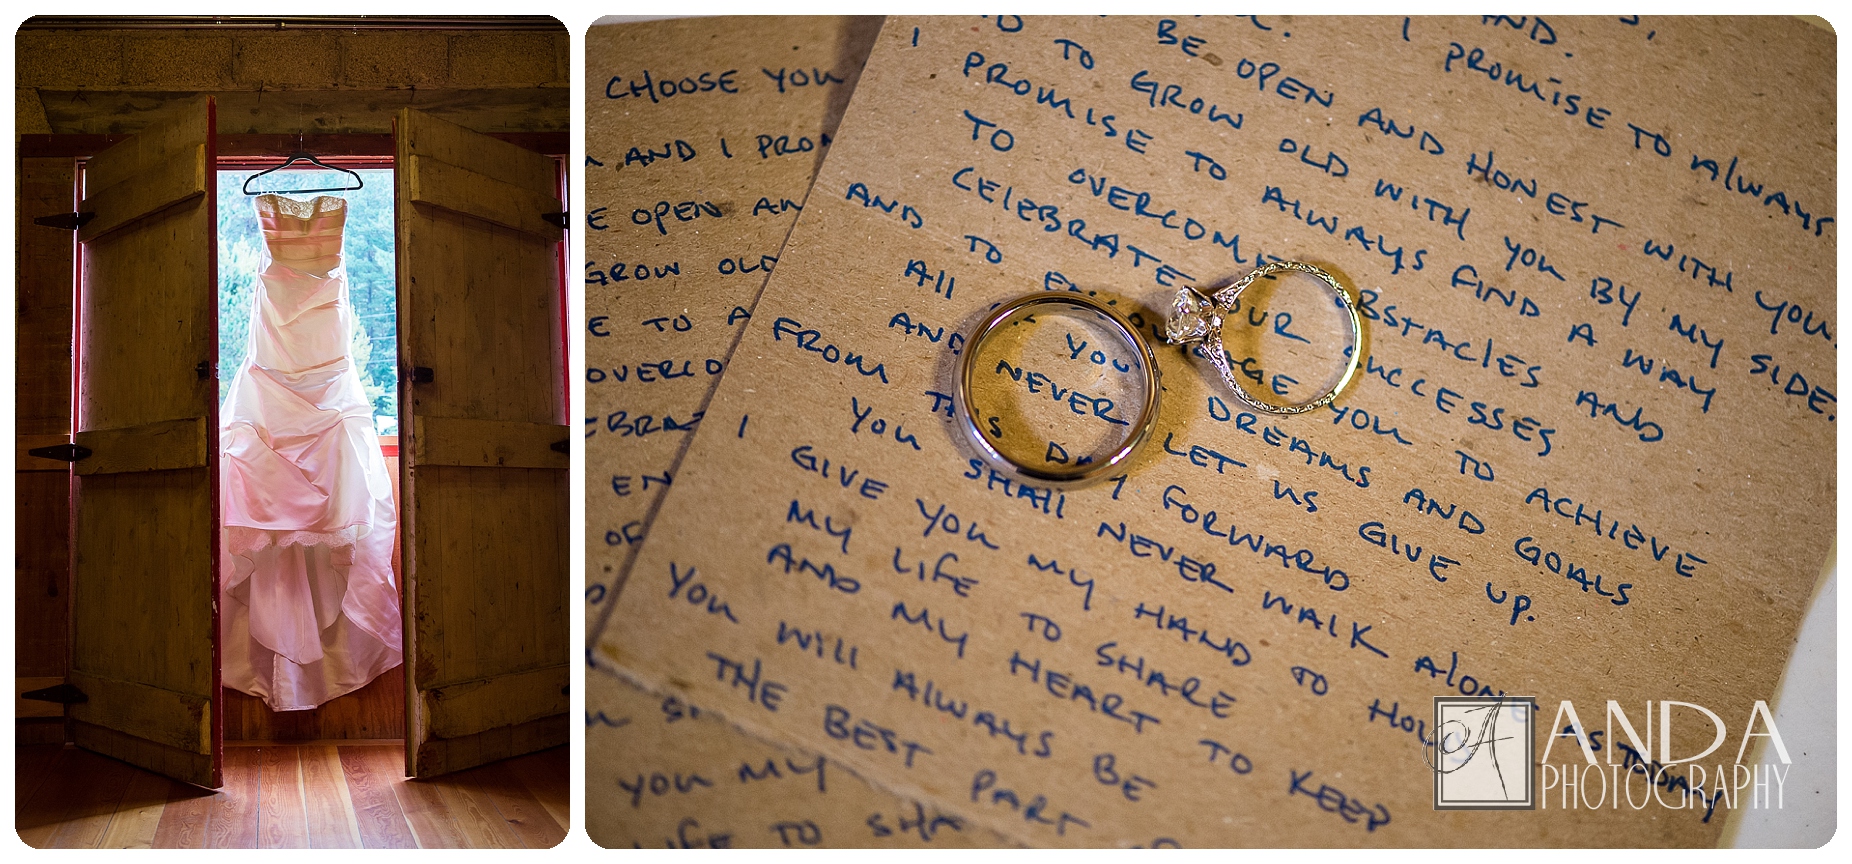 CHOOSE YOU
AND I PRO
OPEN AN
GROW OLD
E TO A
OVERCO
EN
OF
AND.
I PROMISE TO ALWAYS
BE OPEN AND HONEST WITH YOU.
TO GROW OLD WITH YOU BY MY SIDE.
I PROMISE TO ALWAYS FIND A WAY
TO OVERCOME OBSTACLES AND
CELEBRATE OUR SUCCESSES
AND TO ENCOURAGE YOU TO ACHIEVE
ALL YOUR DREAMS AND GOALS
AND NEVER LET US GIVE UP.
FROM THIS DAY FORWARD
YOU SHALL NEVER WALK ALONE
I GIVE YOU MY HAND TO HOLD AS TODAY
MY LIFE TO SHARE
AND MY HEART TO KEEP
YOU WILL ALWAYS BE
THE BEST PART
YOU MY
LIFE TO SHA
A ANDA
PHOTOGRAPHY